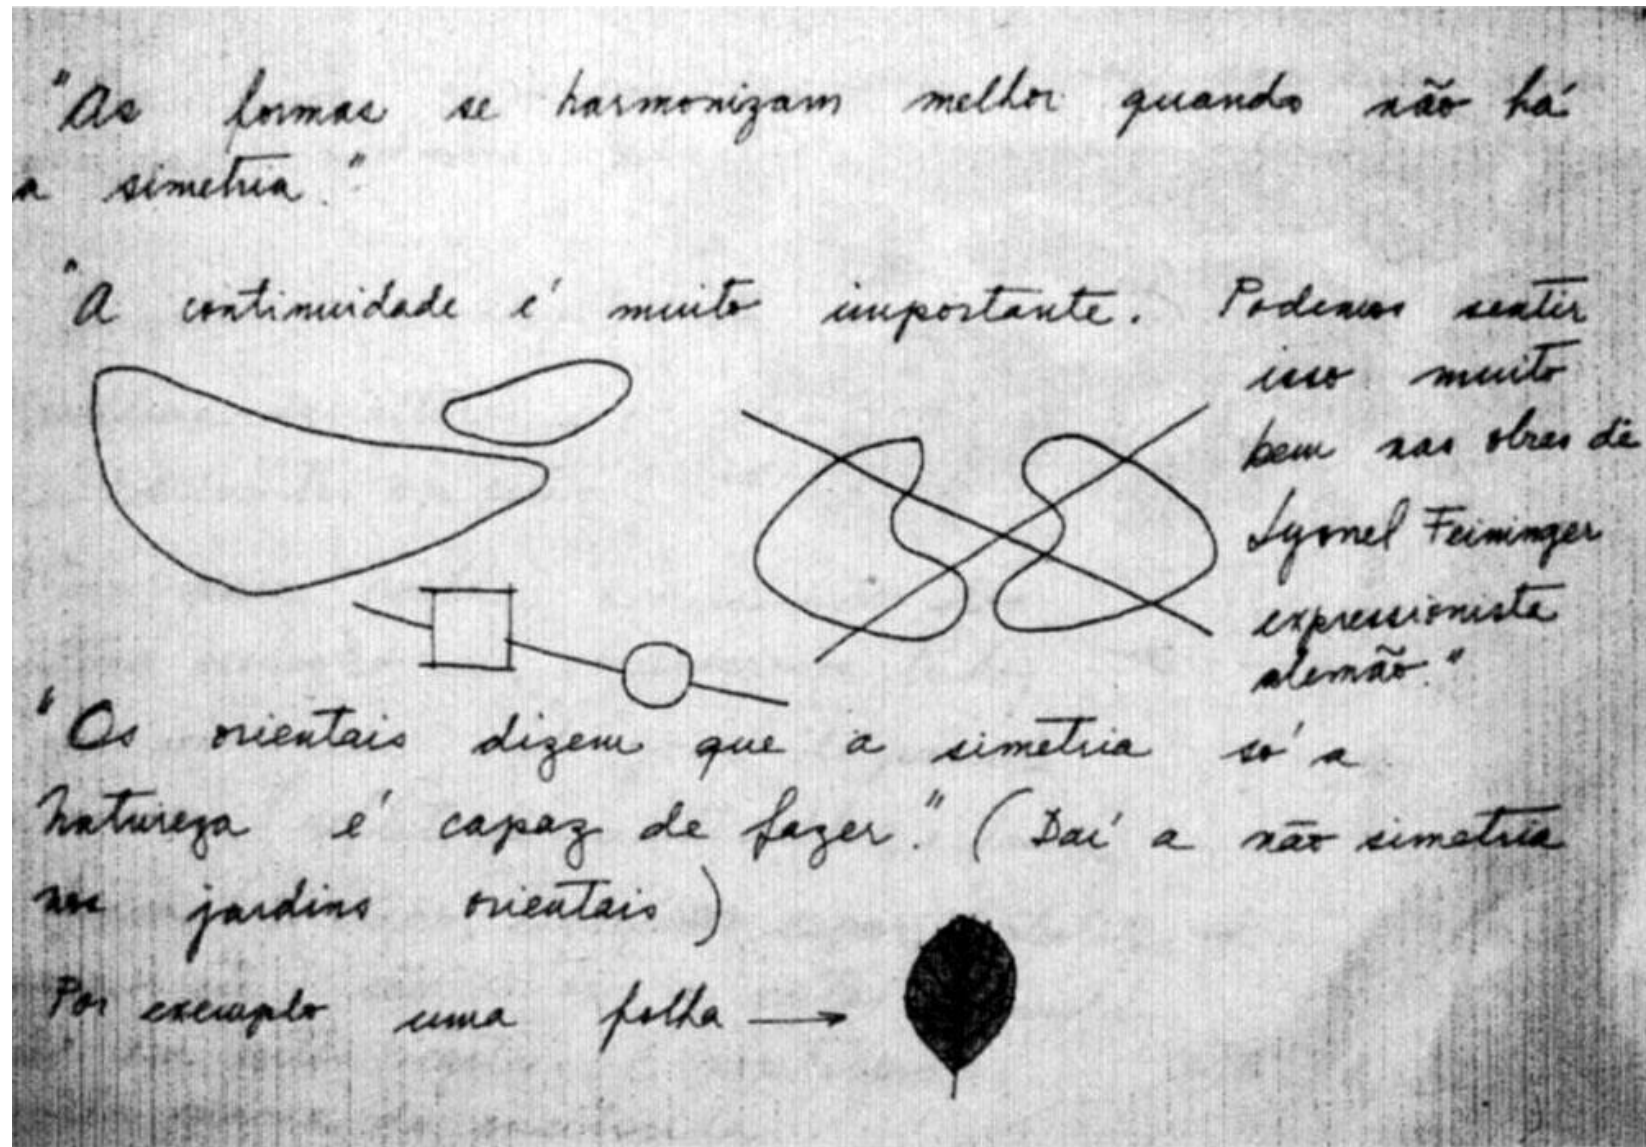 "As formas se harmonizam melhor quando não há
a simetria."
"A continuidade é muito importante. Podemos sentir
isso muito
bem nas obras de
Lyonel Feininger
expressionista
alemão."
"Os orientais dizem que a simetria só a
natureza é capaz de fazer." (Daí a não simetria
nos jardins orientais)
Por exemplo uma folha →